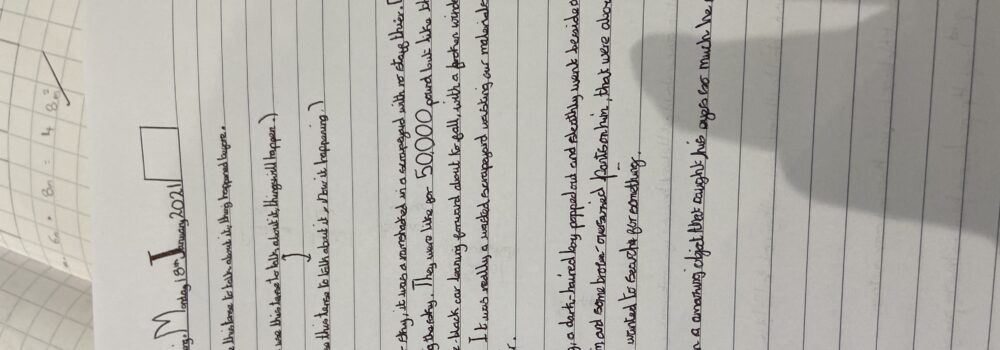 6n × 8n = 4 8n²
Monday 18th January 2021
this tense to talk about it, thing happened before.
use this tense to talk about it, things will happen.)
se this tense to talk about it, now it happening.)
sky, it was a mishmashed in a scrapyard with no stay thier.
g the sky. They were like for 50,000 pound but like
black car leaning forward about to fall, with a broken wind
It was really a wasted scrapyard wasting our materials
, a dark-haired boy popped out and stealthly went besided
and some broke- pants on him, that were abov
wanted to search for something.
n a amazing object that caught his eyes so much he